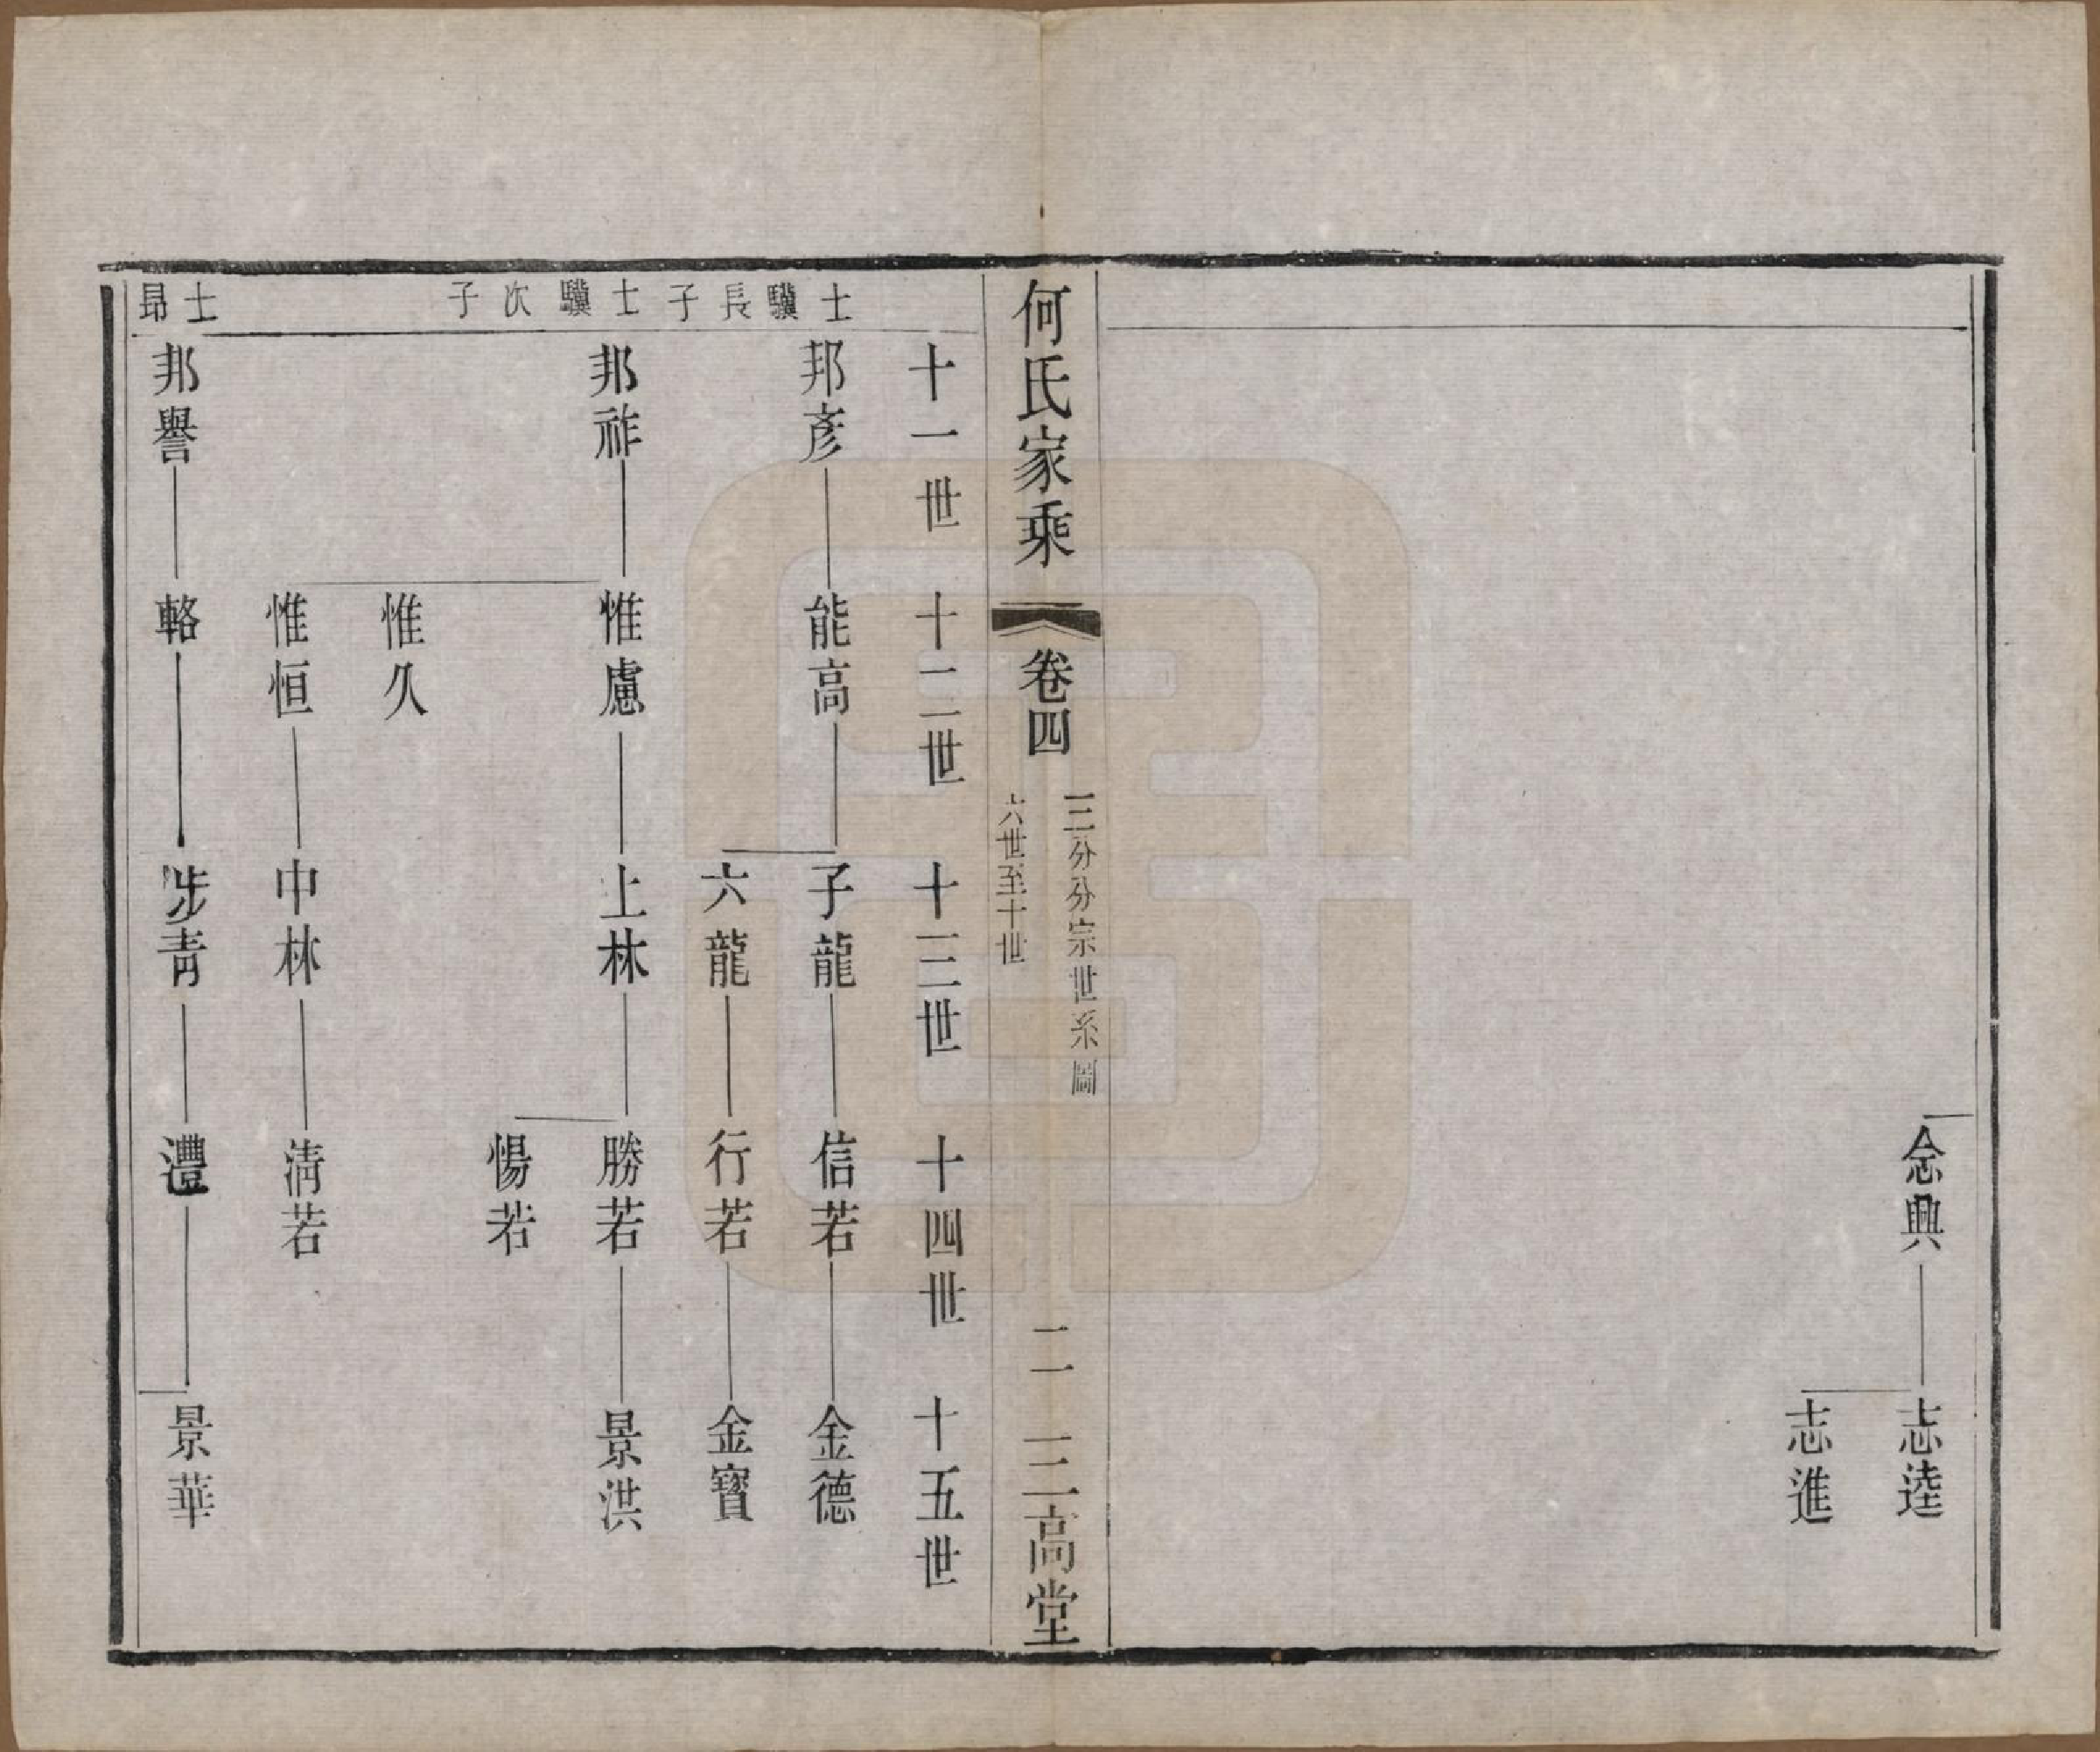 念興
志逵
志進
何氏家乘
卷四
三分分宗世系圖
六世至十世
二
三高堂
十一世
十二世
十三世
十四世
十五世
士驥長子
邦彥
能高
子龍
信若
金德
六龍
行若
金寶
士驥次子
邦祚
惟慮
上林
勝若
景洪
惕若
惟久
惟恒
中林
清若
士昂
邦譽
輅
步青
灃
景華